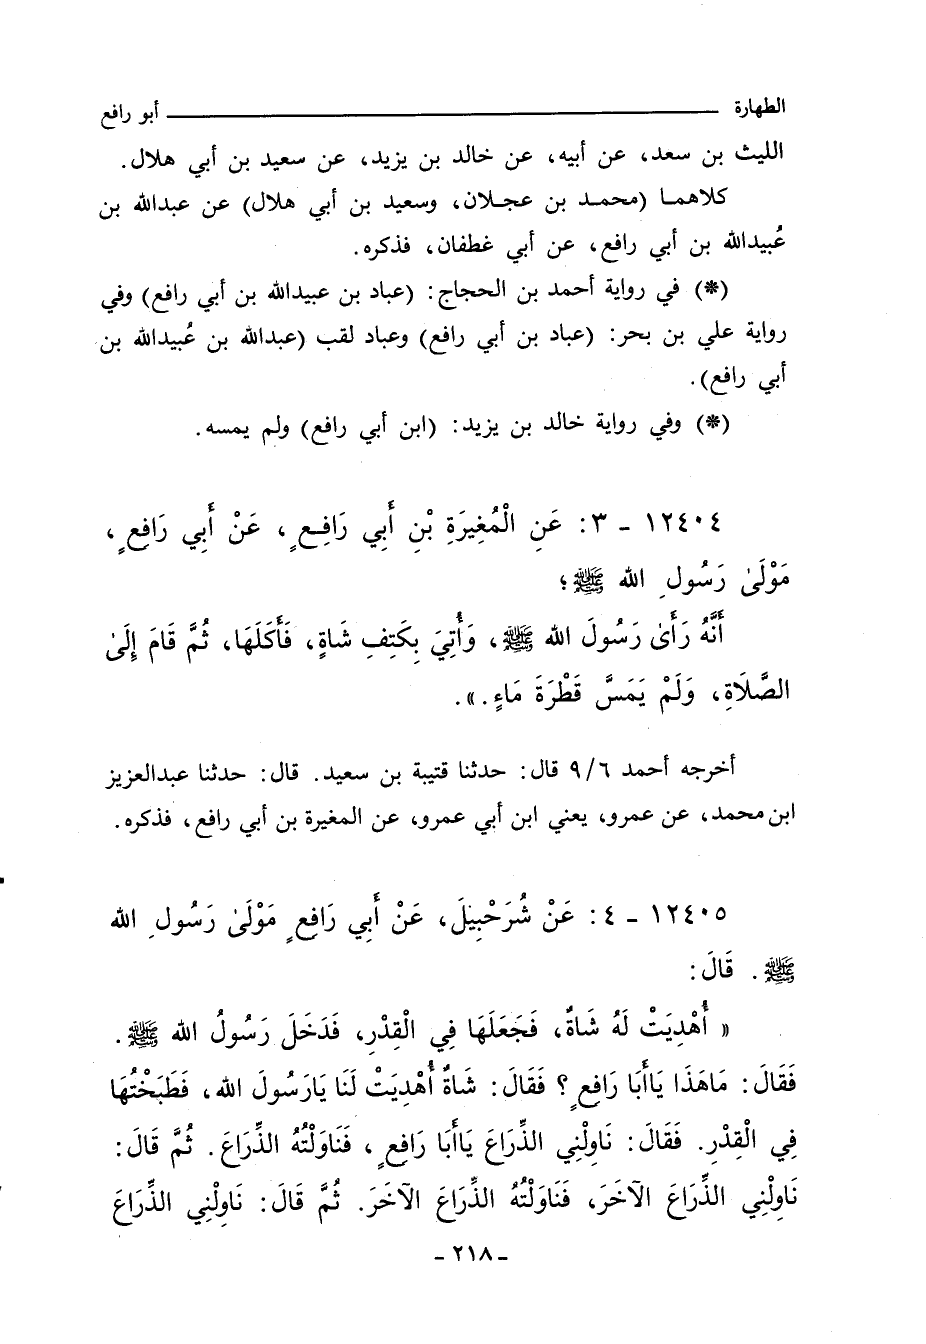 الطهارة ــــــــــــــــــــ أبو رافع
الليث بن سعد، عن أبيه، عن خالد بن يزيد، عن سعيد بن أبي هلال.
كلاهما (محمد بن عجلان، وسعيد بن أبي هلال) عن عبدالله بن
عُبيدالله بن أبي رافع، عن أبي غطفان، فذكره.
(*) في رواية أحمد بن الحجاج: (عباد بن عبيدالله بن أبي رافع) وفي
رواية علي بن بحر: (عباد بن أبي رافع) وعباد لقب (عبدالله بن عُبيدالله بن
أبي رافع).
(*) وفي رواية خالد بن يزيد: (ابن أبي رافع) ولم يمسه.
١٢٤٠٤ - ٣: عَنِ الْمُغِيرَةِ بْنِ أَبِي رَافِعٍ، عَنْ أَبِي رَافِعٍ،
مَوْلَىٰ رَسُولِ الله ﷺ؛
أَنَّهُ رَأَىٰ رَسُولَ الله ﷺ، وَأُتِيَ بِكَتِفِ شَاةٍ، فَأَكَلَهَا، ثُمَّ قَامَ إِلَىٰ
الصَّلَاةِ، وَلَمْ يَمَسَّ قَطْرَةَ مَاءٍ.».
أخرجه أحمد ٩/٦ قال: حدثنا قتيبة بن سعيد. قال: حدثنا عبدالعزيز
ابن محمد، عن عمرو، يعني ابن أبي عمرو، عن المغيرة بن أبي رافع، فذكره.
١٢٤٠٥ - ٤: عَنْ شُرَحْبِيْلَ، عَنْ أَبِي رَافِعٍ مَوْلَىٰ رَسُولِ الله
ﷺ. قَالَ:
« أُهْدِيَتْ لَهُ شَاةٌ، فَجَعَلَهَا فِي الْقِدْرِ، فَدَخَلَ رَسُولُ الله ﷺ.
فَقَالَ: مَاهَذَا يَاأَبَا رَافِعٍ؟ فَقَالَ: شَاةٌ أُهْدِيَتْ لَنَا يَارَسُولَ الله، فَطَبَخْتُهَا
فِي الْقِدْرِ. فَقَالَ: نَاوِلْنِي الذِّرَاعَ يَاأَبَا رَافِعٍ، فَنَاوَلْتُهُ الذِّرَاعَ. ثُمَّ قَالَ:
نَاوِلْنِي الذِّرَاعَ الآخَرَ، فَنَاوَلْتُهُ الذِّرَاعَ الآخَرَ. ثُمَّ قَالَ: نَاوِلْنِي الذِّرَاعَ
- ٢١٨ -